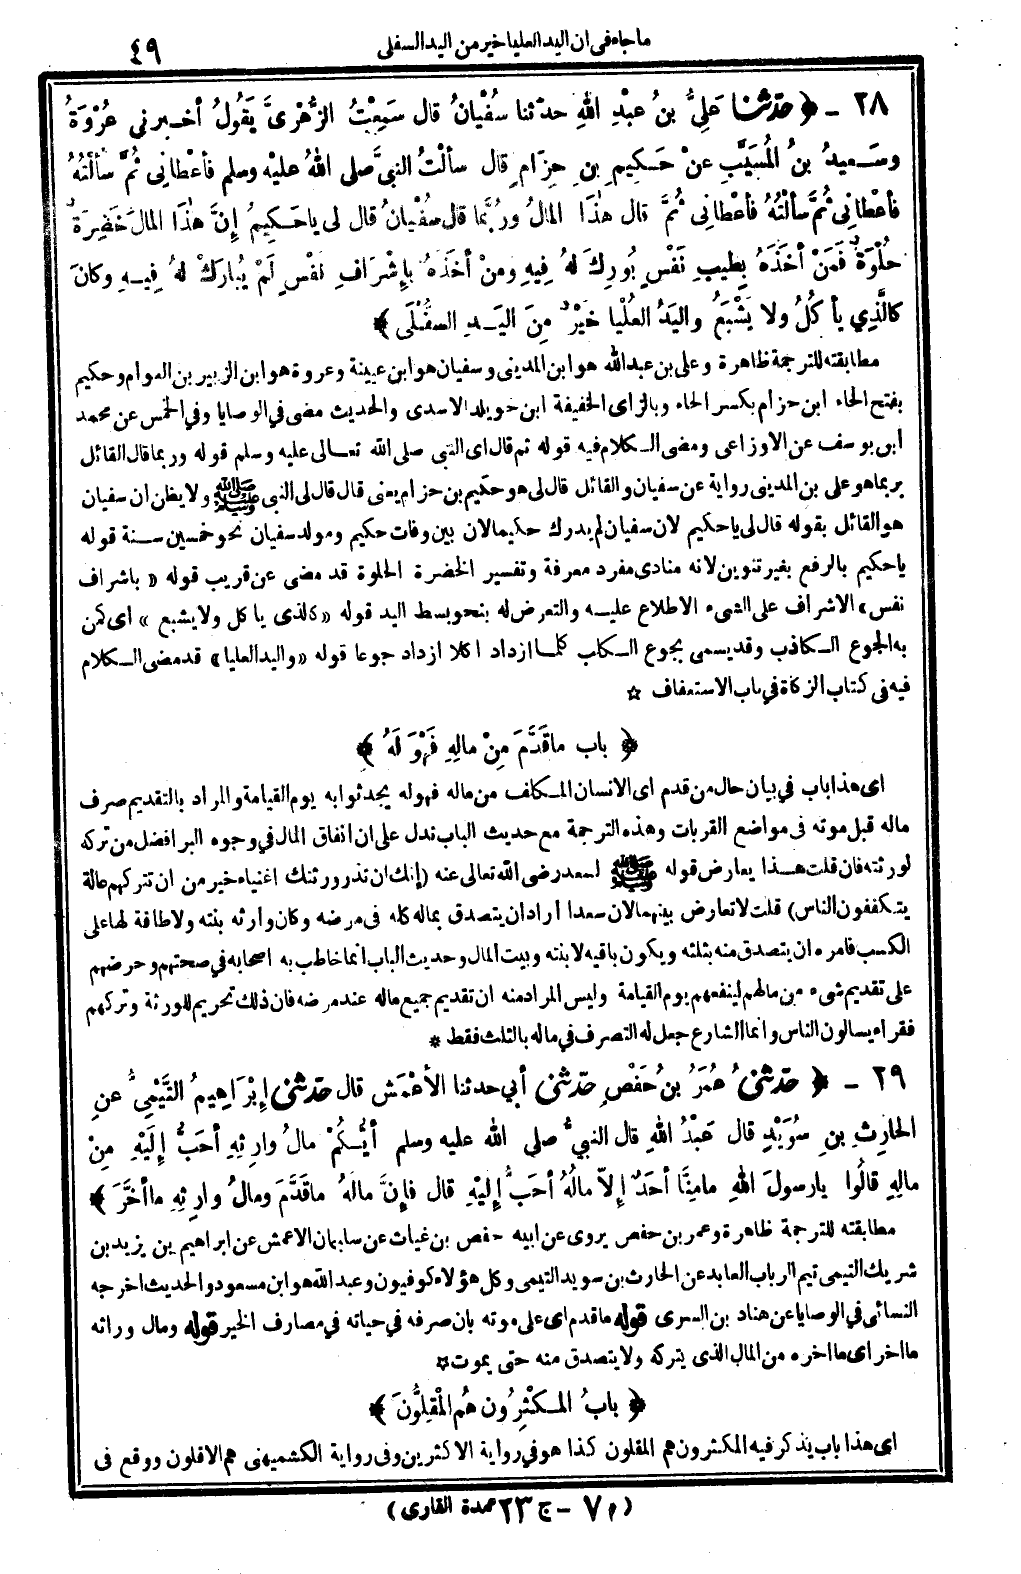 ما جاء في ان اليد العليا خير من اليد السفلى
٤٩
٢٨ - ﴿ حدثنا عَلِيُّ بنُ عبْدِ اللهِ حدثنا سُفْيانُ قال سَمِعْتُ الزُّهْرِيَّ يَقُولُ أخبرني عُرْوَةُ
وسَعيدُ بنُ المُسَيَّبِ عنْ حَكِيمِ بنِ حِزَامٍ قال سألْتُ النبيَّ صلى اللهُ عليْه وسلم فأعْطانِي ثُمَّ سألْتُهُ
فأعْطانِي ثُمَّ سألْتُهُ فأعْطانِي ثُمَّ قال هٰذَا المالُ ورُبَّما قال سُفْيانُ قال لي ياحَكِيمُ إنَّ هٰذَا المالَ خَضِرَةٌ
حُلْوَةٌ فَمَنْ أخَذَهُ بِطِيبِ نَفْسٍ بُورِكَ لهُ فِيهِ ومنْ أخَذَهُ بإشْرَافِ نَفْسٍ لَمْ يُبارَكْ لهُ فِيهِ وكانَ
كالَّذِي يأكُلُ ولا يَشْبَعُ واليَدُ العُلْيا خَيْرٌ مِنَ اليَدِ السفْلَى ﴾
مطابقته للترجمة ظاهرة وعلى بن عبد الله هو ابن المديني وسفيان هو ابن عيينة وعروة هو ابن الزبير بن العوام وحكيم
بفتح الحاء ابن حزام بكسر الحاء وبالزاى الخفيفة ابن خويلد الاسدى والحديث مضى في الوصايا وفي الخمس عن محمد
ابن يوسف عن الاوزاعى ومضى الكلام فيه قوله ثم قال اى النبي صلى الله تعالى عليه وسلم قوله وربما قال القائل
بربما هو على بن المديني رواية عن سفيان والقائل قال لي هو حكيم بن حزام يعنى قال قال لى النبي ﷺ ولا يظن ان سفيان
هو القائل بقوله قال لى ياحكيم لان سفيان لم يدرك حكيما لان بين وفات حكيم ومولد سفيان نحو خمسين سنة قوله
ياحكيم بالرفع بغير تنوين لانه منادى مفرد معرفة وتفسير الخضرة الحلوة قد مضى عن قريب قوله « باشراف
نفس» الاشراف على الشىء الاطلاع عليه والتعرض له بنحو بسط اليد قوله «كالذى ياكل ولا يشبع » اى كمن
به الجوع الكاذب وقد يسمى بجوع الكلب كلما ازداد اكلا ازداد جوعا قوله «واليد العليا» قد مضى الكلام
فيه في كتاب الزكاة في باب الاستعفاف ☆
﴿ باب ماقَدَّمَ مِنْ مالِهِ فَهْوَ لَهُ ﴾
اى هذا باب في بيان حال من قدم اى الانسان المكلف من ماله فهو له يجد ثوابه يوم القيامة والمراد بالتقديم صرف
ماله قبل موته فى مواضع القربات وهذه الترجمة مع حديث الباب تدل على ان انفاق المال في وجوه البر افضل من تركه
لورثته فان قلت هذا يعارض قوله ﷺ لسعد رضى الله تعالى عنه (إنك ان تذر ورثتك اغنياء خير من ان تتركهم عالة
يتكففون الناس) قلت لاتعارض بينهما لان سعدا اراد ان يتصدق بماله كله فى مرضه وكان وارثه بنته ولا طاقة لها على
الكسب فامره ان يتصدق منه بثلثه ويكون باقيه لابنته وبيت المال وحديث الباب انما خاطب به اصحابه في صحتهم وحرضهم
على تقديم شىء من مالهم لينفعهم يوم القيامة وليس المراد منه ان تقديم جميع ماله عند مرضه فان ذلك تحريم للورثة وتركهم
فقراء يسالون الناس وانما الشارع جعل له التصرف في ماله بالثلث فقط *
٢٩ - ﴿ حدثنى عُمَرُ بنُ حَفْصٍ حدثنى أبي حدثنا الأعْمَشُ قال حدثنى إبْرَاهِيمُ التَّيْمِيُّ عنِ
الحارِثِ بنِ سُوَيْدٍ قال عَبْدُ اللهِ قال النبيُّ صلى اللهُ عليه وسلم أيُّكُمْ مالُ وارِثِهِ أحَبُّ إلَيْهِ مِنْ
مالِهِ قالُوا يارسولَ اللهِ مامِنَّا أحَدٌ إلاّ مالُهُ أحَبُّ إليْهِ قال فإنَّ مالَهُ ماقَدَّمَ ومالُ وارِثِهِ ماأخَّرَ ﴾
مطابقته للترجمة ظاهرة وعمر بن حفص يروى عن ابيه حفص بن غياث عن سليمان الاعمش عن ابراهيم بن يزيد بن
شريك التيمى تيم الرباب العابد عن الحارث بن سويد التيمى وكل هؤلاء كوفيون وعبد الله هو ابن مسعود والحديث اخرجه
النسائى في الوصايا عن هناد بن السرى قوله ماقدم اى على موته بان صرفه في حياته في مصارف الخير قوله ومال وراثه
ما اخر اى ما اخره من المال الذى يتركه ولا يتصدق منه حتى يموت☆
﴿ بابُ المكْثِرُون هُم المْقِلُّونَ ﴾
اى هذا باب يذكر فيه المكثرون هم المقلون كذا هو في رواية الاكثرين وفى رواية الكشميهنى هم الاقلون ووقع فى
(م ٧ - ج ٢٣ عمدة القارى)